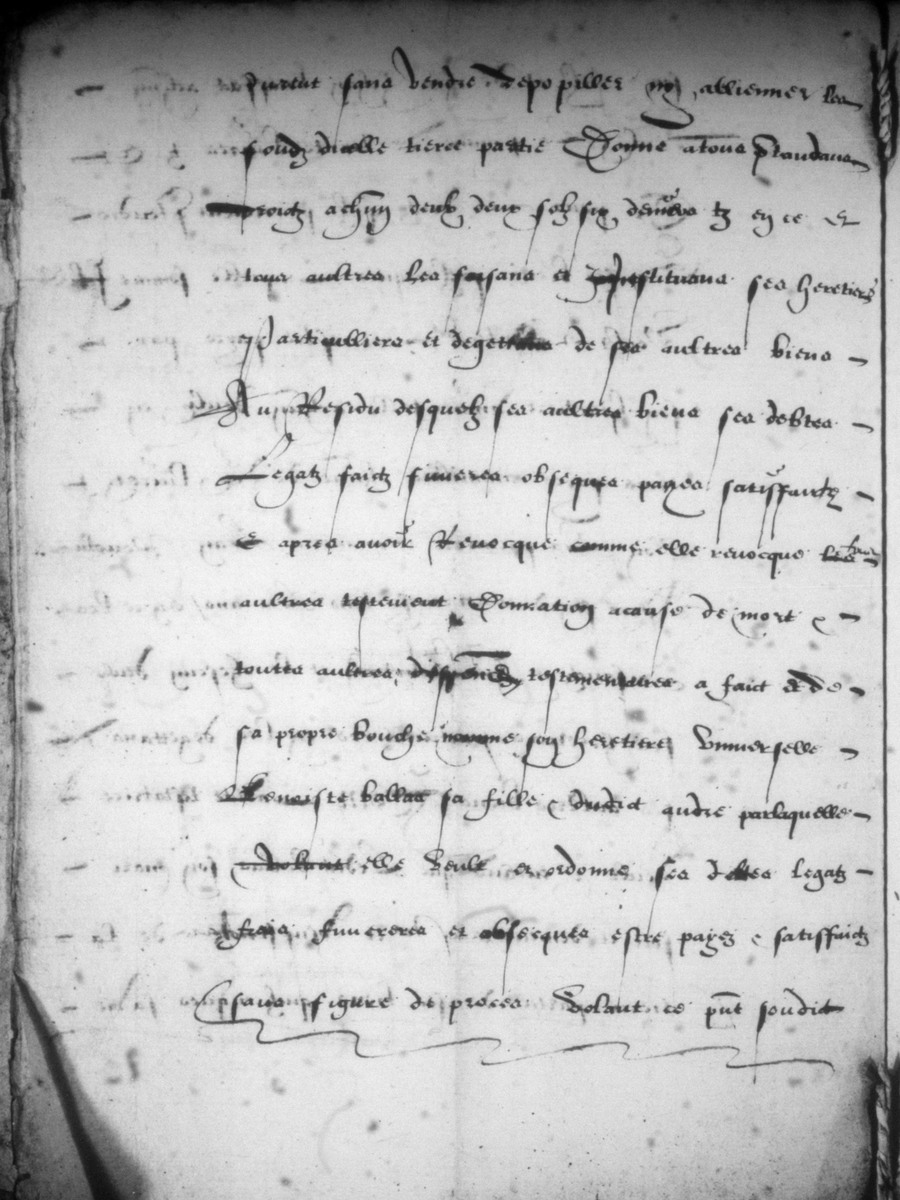 durent sans vendre depopiller ny allienner les
fondz dicelle tierce partie Donne a tous pretandans
droictz achun deulx deux solz six deniers tz en ce et
tous aultres les faisans et instituans ses heretiers
particulliers et degettans de ses aultres biens
Au Residu desquelz ses aultres biens ses debtes
Legatz faictz funeres obseques payes satisfaictz
Et apres avoir Revocque comme elle revocque tous
aultres testement Donnation a cause de mort &
toutes aultres testementaires a faict et de
sa propre bouche nomme son heretiere unniverselle
Benoiste ballas sa fille & dudict andre par laquelle
elle veult et ordonne ses debtes legatz
frais funereres et obseques estre payez & satisfaictz
sans figure de proces Volant ce pnt sondict